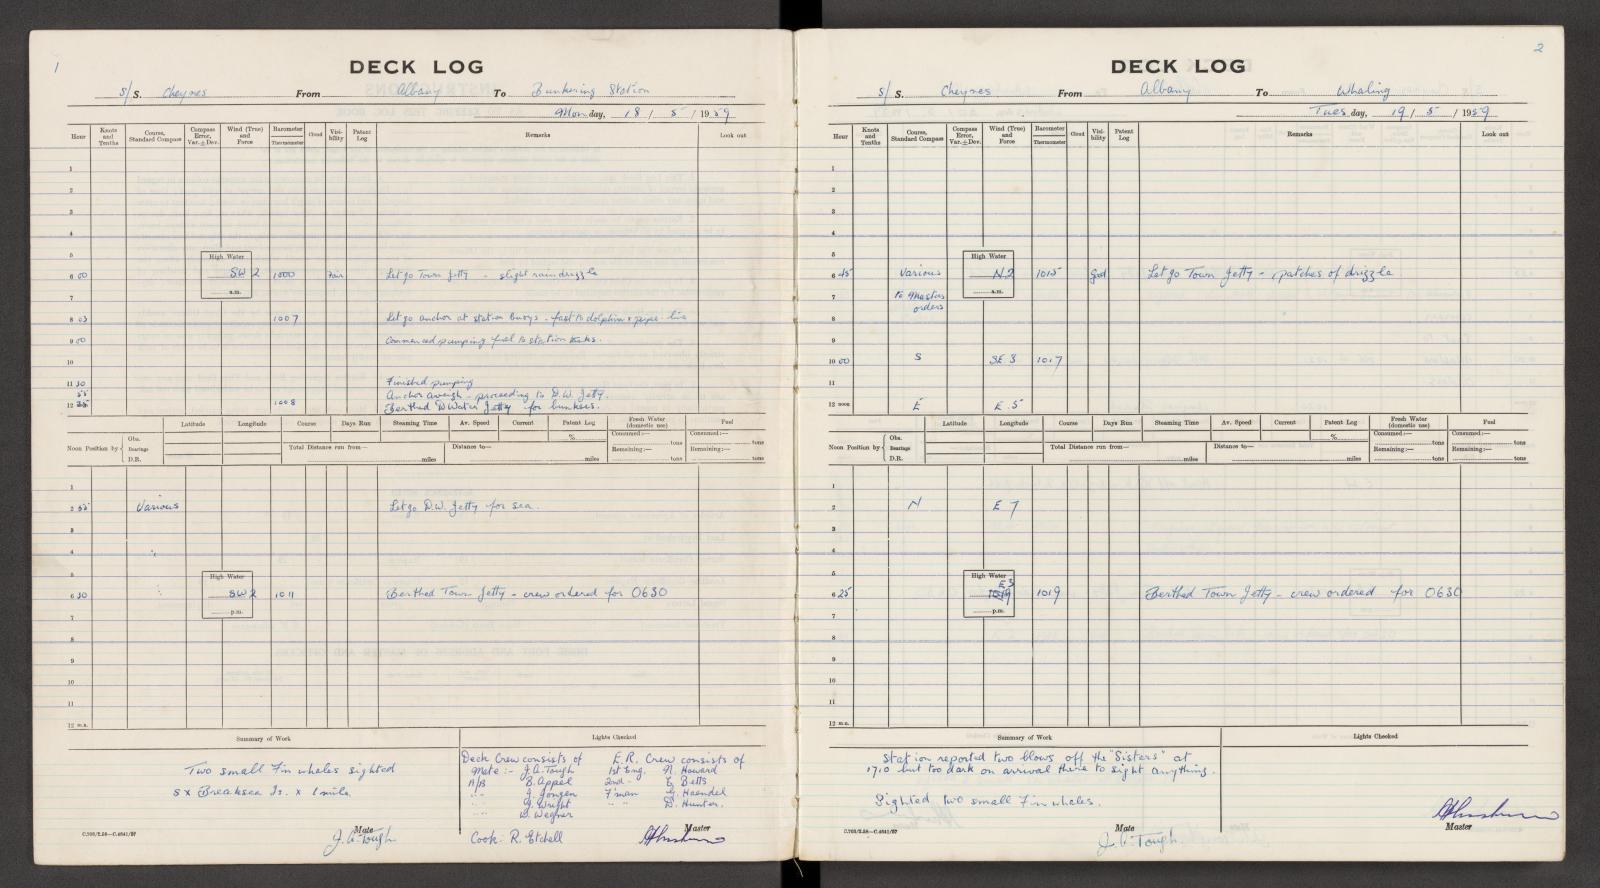 1
DECK LOG
S/S. Cheynes From Albany To Bunkering Station
Monday, 18 / 5 / 1959
Hour Knots and Tenths Course, Standard Compass Compass Error, Var.±Dev. Wind (True) and Force Barometer Thermometer Cloud Visibility Patent Log Remarks Look out
1
2
3
4
5 High Water
6 00 SW 2 1000 Fair Let go Town Jetty - slight rain drizzle
a.m.
7
8 03 1007 Let go anchor at station buoys - fast to dolphin & pipe-line
9 00 Commenced pumping fuel to station tanks.
10
11 30 Finished pumping
55 Anchor aweigh - proceeding to D.W. Jetty.
12 1008 Berthed D Water Jetty for bunkers.
Latitude Longitude Course Days Run Steaming Time Av. Speed Current Patent Log Fresh Water (domestic use) Fuel
Noon Position by Obs. Bearings D.R. Total Distance run from— miles Distance to— miles % Consumed:— tons Remaining:— tons Consumed:— tons Remaining:— tons
1
2 55 Various Let go D.W. Jetty for sea.
3
4
5 High Water
6 30 SW 2 1011 Berthed Town Jetty - crew ordered for 0630
p.m.
7
8
9
10
11
12 m.n.
Summary of Work Lights Checked
Two small Fin whales sighted
S x Breaksea Is. x 1 mile.
Deck Crew consists of
Mate :- J.A. Tough
A/B B. Appel
" J. Jongen
" J. Wright
" D. Wegner
Cook. R. Etchell
E.R. Crew consists of
1st Eng. N. Howard
2nd " E. Betts
F'man G. Haendel
" " D. Hunter.
C.703/2.58—C.4641/57
Mate
J. A. Tough
Master
2
DECK LOG
S/S. Cheynes From Albany To Whaling
Tuesday, 19 / 5 / 1959
Hour Knots and Tenths Course, Standard Compass Compass Error, Var.±Dev. Wind (True) and Force Barometer Thermometer Cloud Visibility Patent Log Remarks Look out
1
2
3
4
5 High Water
6 45 Various N.2 1015 Good Let go Town Jetty - patches of drizzle
a.m.
7 to Masters
orders
8
9
10 00 S SE 3 1017
11
12 noon E E.5
Latitude Longitude Course Days Run Steaming Time Av. Speed Current Patent Log Fresh Water (domestic use) Fuel
Noon Position by Obs. Bearings D.R. Total Distance run from— miles Distance to— miles % Consumed:— tons Remaining:— tons Consumed:— tons Remaining:— tons
1
2 N E 7
3
4
5 High Water
E 3
6 25 1019 1019 Berthed Town Jetty - crew ordered for 0630
p.m.
7
8
9
10
11
12 m.n.
Summary of Work Lights Checked
Station reported two blows off the "Sisters" at
1710 but too dark on arrival there to sight anything.
Sighted two small Fin whales.
C.703/2.58—C.4641/57
Mate
J. A. Tough.
Master